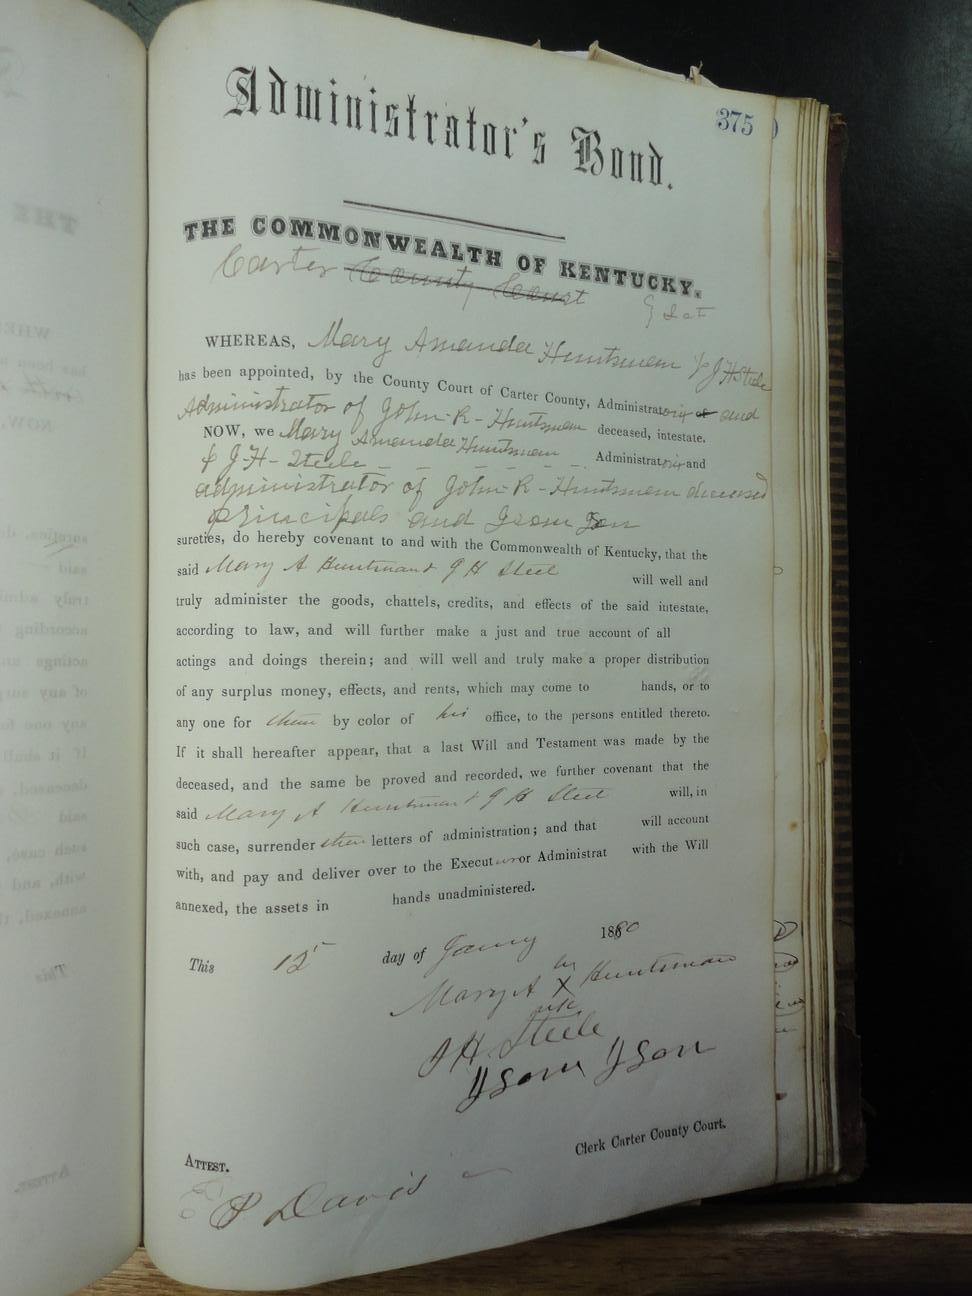 375
Administrator's Bond.
THE COMMONWEALTH OF KENTUCKY.
Carter County Court
WHEREAS, Mary Amanda Huntsman & J H Steele
has been appointed, by the County Court of Carter County, Administratorix or and
Administrator of John R - Huntsman deceased, intestate.
NOW, we Mary Amanda Huntsman
& J - H - Steele - - - - - - - Administratorix and
administrator of John - R - Huntsman deceased
principals and Isom Ison
sureties, do hereby covenant to and with the Commonwealth of Kentucky, that the
said Mary A Huntsman & J H Steel will well and
truly administer the goods, chattels, credits, and effects of the said intestate,
according to law, and will further make a just and true account of all
actings and doings therein; and will well and truly make a proper distribution
of any surplus money, effects, and rents, which may come to hands, or to
any one for them by color of his office, to the persons entitled thereto.
If it shall hereafter appear, that a last Will and Testament was made by the
deceased, and the same be proved and recorded, we further covenant that the
said Mary A Huntsman & J H Steel will, in
such case, surrender their letters of administration; and that will account
with, and pay and deliver over to the Executor or Administrat with the Will
annexed, the assets in hands unadministered.
This 12 day of 1880
Mary A her X mk Huntsman
J H Steele
Isom Ison
Clerk Carter County Court.
ATTEST.
P Davis